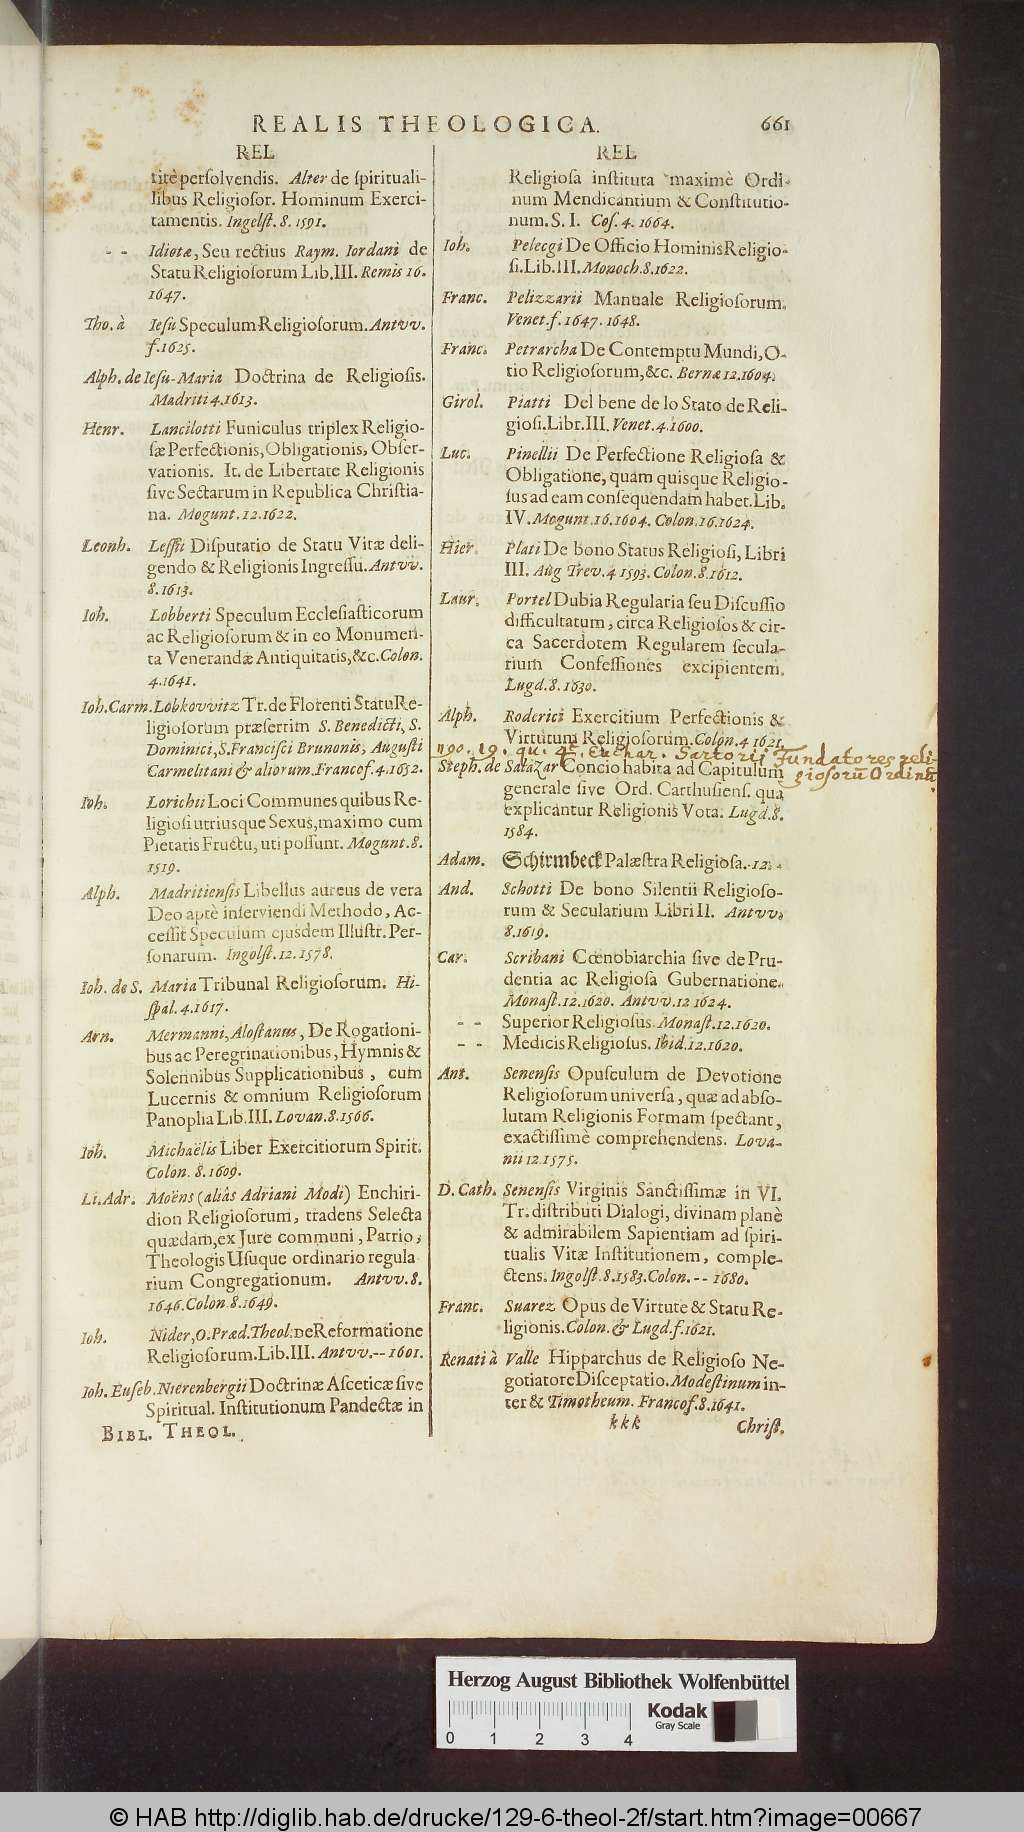 REALIS THEOLOGICA.
661
REL
titè persolvendis. Alter de spirituali-
libus Religiosor. Hominum Exerci-
tamentis. Ingelst. 8. 1591.
- - Idiotæ, Seu rectius Raym. Iordani de
Statu Religiosorum Lib. III. Remis 16.
1647.
Tho. à Iesu Speculum Religiosorum. Antvv.
f. 1625.
Alph. de Iesu-Maria Doctrina de Religiosis.
Madriti 4. 1613.
Henr. Lancilotti Funiculus triplex Religio-
sæ Perfectionis, Obligationis, Obser-
vationis. It. de Libertate Religionis
sive Sectarum in Republica Christia-
na. Mogunt. 12. 1622.
Leonh. Lessii Disputatio de Statu Vitæ deli-
gendo & Religionis Ingressu. Antvv.
8. 1613.
Ioh. Lobberti Speculum Ecclesiasticorum
ac Religiosorum & in eo Monumen-
ta Venerandæ Antiquitatis, &c. Colon.
4. 1641.
Ioh. Carm. Lobkovvitz Tr. de Florenti Statu Re-
ligiosorum præsertim S. Benedicti, S.
Dominici, S. Francisci Brunonis, Augusti
Carmelitani & aliorum. Francof. 4. 1652.
Ioh. Lorichii Loci Communes quibus Re-
ligiosi utriusque Sexus, maximo cum
Pietatis Fructu, uti possunt. Mogunt. 8.
1519.
Alph. Madritiensis Libellus aureus de vera
Deo aptè inserviendi Methodo, Ac-
cessit Speculum ejusdem Illustr. Per-
sonarum. Ingolst. 12. 1578.
Ioh. de S. Maria Tribunal Religiosorum. Hi-
spal. 4. 1617.
Arn. Mermanni, Alostanus, De Rogationi-
bus ac Peregrinationibus, Hymnis &
Solennibus Supplicationibus, cum
Lucernis & omnium Religiosorum
Panoplia Lib. III. Lovan. 8. 1566.
Ioh. Michaëlis Liber Exercitiorum Spirit.
Colon. 8. 1609.
Li. Adr. Moëns (aliàs Adriani Modi) Enchiri-
dion Religiosorum, tradens Selecta
quædam, ex Jure communi, Patrio,
Theologis Usuque ordinario regula
rium Congregationum. Antvv. 8.
1646. Colon. 8. 1649.
Ioh. Nider, O. Præd. Theol. De Reformatione
Religiosorum. Lib. III. Antvv. -- 1601.
Ioh. Euseb. Nierenbergii Doctrinæ Asceticæ sive
Spiritual. Institutionum Pandectæ in
BIBL. THEOL.
REL
Religiosa instituta maximè Ordi-
num Mendicantium & Constitutio-
num. S. I. Cos. 4. 1664.
Ioh. Pelecgi De Officio Hominis Religio-
si. Lib. III. Monoch. 8. 1622.
Franc. Pelizzarii Manuale Religiosorum.
Venet. f. 1647. 1648.
Franc. Petrarcha De Contemptu Mundi, O-
tio Religiosorum, &c. Bernæ 12. 1604.
Girol. Piatti Del bene de lo Stato de Reli-
giosi. Libr. III. Venet. 4. 1600.
Luc. Pinellii De Perfectione Religiosa &
Obligatione, quam quisque Religio-
sus ad eam consequendam habet. Lib.
IV. Mogunt. 16. 1604. Colon. 16. 1624.
Hier. Plati De bono Status Religiosi, Libri
III. Aug Trev. 4 1593. Colon. 8. 1612.
Laur. Portel Dubia Regularia seu Discussio
difficultatum, circa Religiosos & cir-
ca Sacerdotem Regularem secula-
rium Confessiones excipientem.
Lugd. 8. 1630.
Alph. Roderici Exercitium Perfectionis &
Virtutum Religiosorum. Colon. 4 1621.
1190. 19. qu. 4º. Euchar. Sartorii Fundatores reli-
giosorũ Ordinũ.
Steph. de Salazar Concio habita ad Capitulum
generale sive Ord. Carthusiens. qua
explicantur Religionis Vota. Lugd. 8.
1584.
Adam. Schirmbeck Palæstra Religiosa. 12. -
And. Schotti De bono Silentii Religioso-
rum & Secularium Libri II. Antvv.
8. 1619.
Car. Scribani Cœnobiarchia sive de Pru-
dentia ac Religiosa Gubernatione.
Monast. 12. 1620. Antvv. 12 1624.
- - Superior Religiosus. Monast. 12. 1620.
- - Medicis Religiosus. Ibid. 12. 1620.
Ant. Senensis Opusculum de Devotione
Religiosorum universa, quæ ad abso-
lutam Religionis Formam spectant,
exactissimè comprehendens. Lova-
nii 12. 1575.
D. Cath. Senensis Virginis Sanctissimæ in VI.
Tr. distributi Dialogi, divinam planè
& admirabilem Sapientiam ad spiri-
tualis Vitæ Institutionem, comple-
ctens. Ingolst. 8. 1583. Colon. -- 1680.
Franc. Suarez Opus de Virtute & Statu Re-
ligionis. Colon. & Lugd. f. 1621.
Renati à Valle Hipparchus de Religioso Ne-
gotiatore Disceptatio. Modestinum in-
ter & Timotheum. Francof. 8. 1641.
kkk
Christ.
Herzog August Bibliothek Wolfenbüttel
0 1 2 3 4
Kodak
Gray Scale
© HAB http://diglib.hab.de/drucke/129-6-theol-2f/start.htm?image=00667